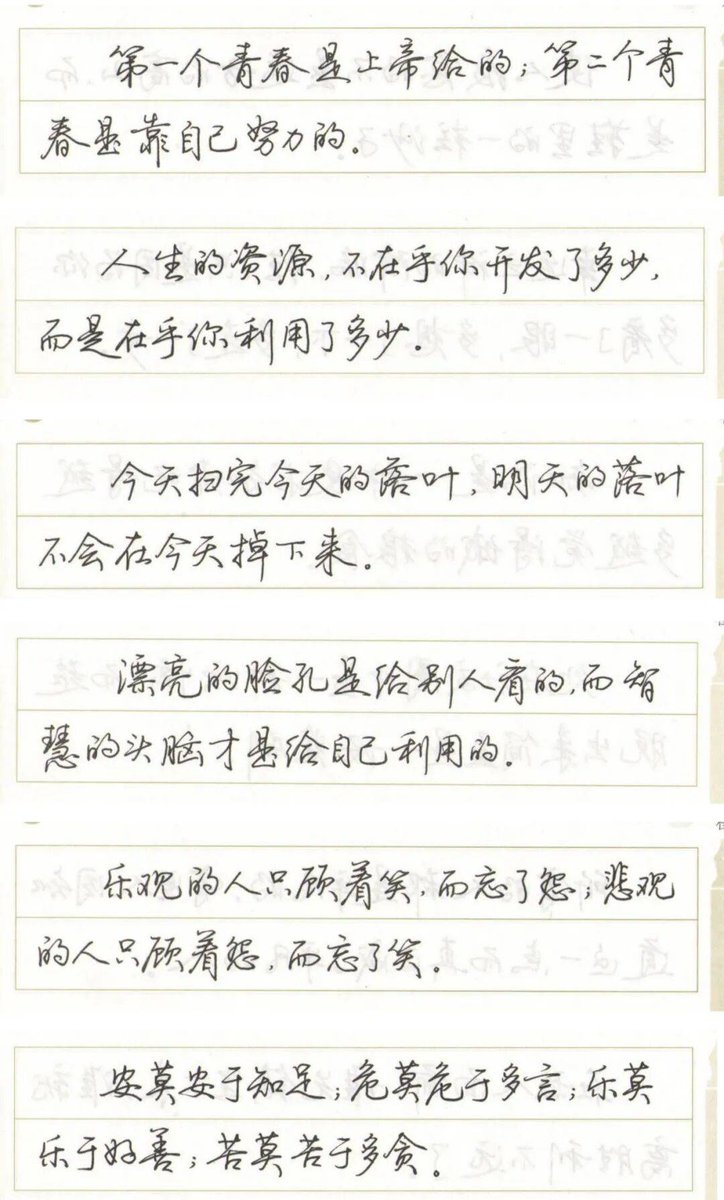 第一个青春是上帝给的；第二个青
春是靠自己努力的。
人生的资源，不在乎你开发了多少，
而是在乎你利用了多少。
今天扫完今天的落叶，明天的落叶
不会在今天掉下来。
漂亮的脸孔是给别人看的，而智
慧的头脑才是给自己利用的。
乐观的人只顾着笑，而忘了怨；悲观
的人只顾着怨，而忘了笑。
安莫安于知足；危莫危于多言；乐莫
乐于好善；苦莫苦于多贪。